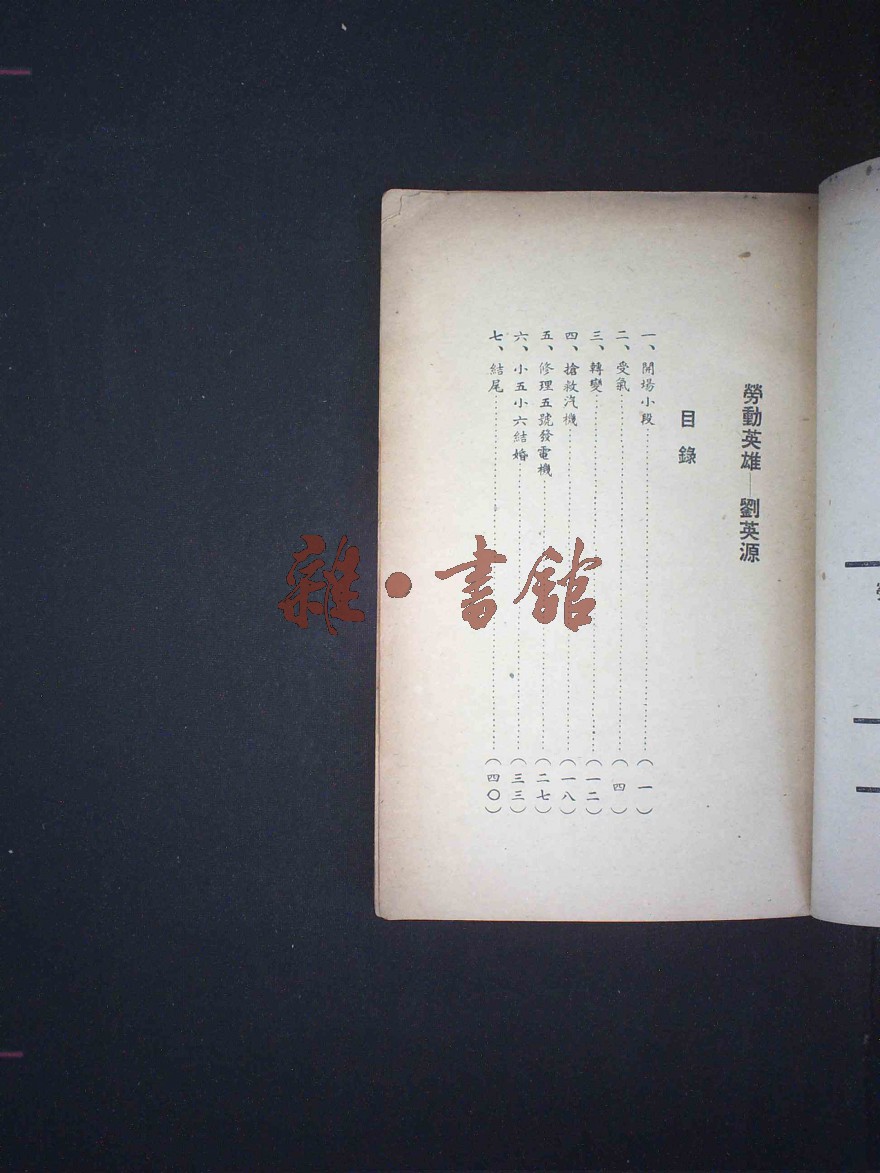 勞動英雄——劉英源
目錄
一、開場小段……………………(一)
二、受氣……………………(四)
三、轉變……………………(一二)
四、搶救汽機……………………(一八)
五、修理五號發電機……………………(二七)
六、小五小六結婚……………………(三三)
七、結尾……………………(四〇)
雜·書館